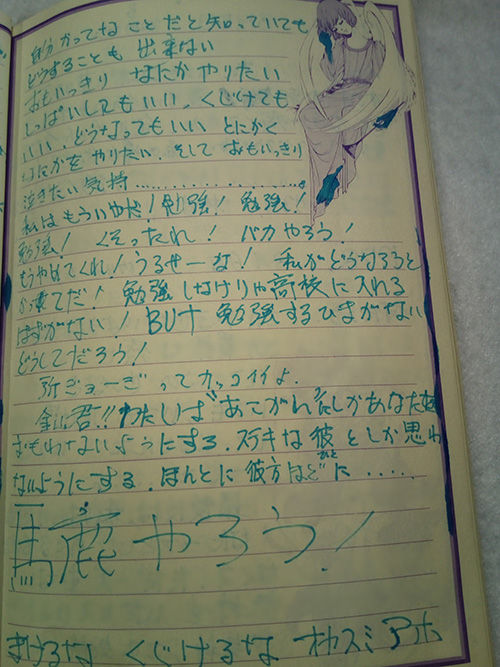 自分かってな ことだと知っていても
どうすることも 出来ない
おもいっきり なにかやりたい
しっぱいしてもいい、くじけても
いい、どうなってもいい とにかく
なにかを やりたい、そして おもいっきり
泣きたい気持……………
私はもういやだ！勉強！勉強！
勉強！ くそったれ！ バカやろう！
もうやめてくれ！うるせーな！ 私がどうなろうと
かっ手だ！ 勉強しなけりゃ高校に入れる
はずがない！ BUT 勉強するひまがない
どうしてだろう！
ってカッコイイよ.
君!! わたしは“あこがれ”にしかあなたを
おもわないようにする.ステキな彼としか思わ
ないようにする.ほんとに彼方ほどに.....
馬鹿やろう！
まけるな くじけるな オヤスミ アホ